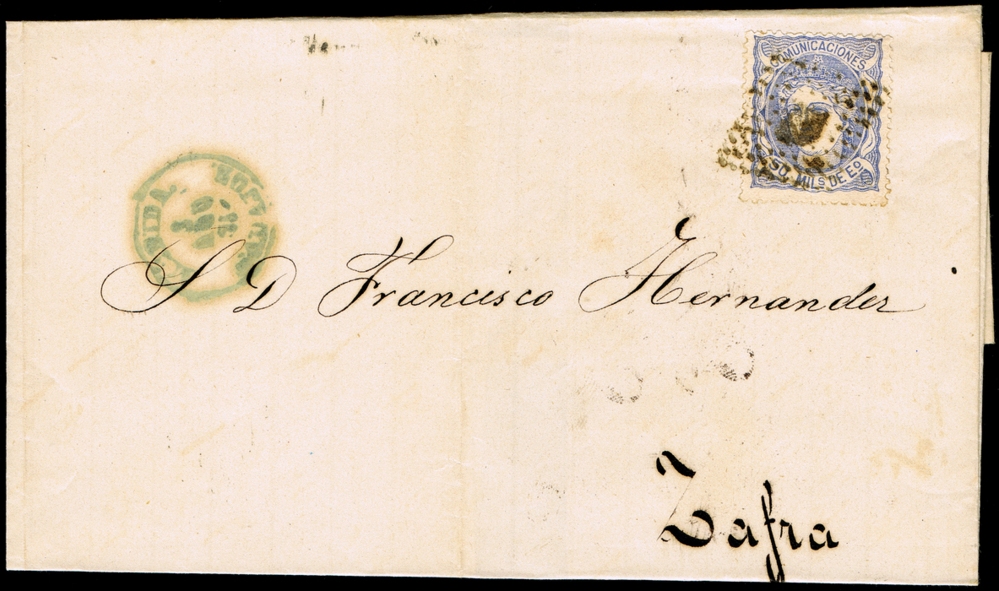 COMUNICACIONES
50 MILS DE EO
S D Francisco Hernandez
Zafra